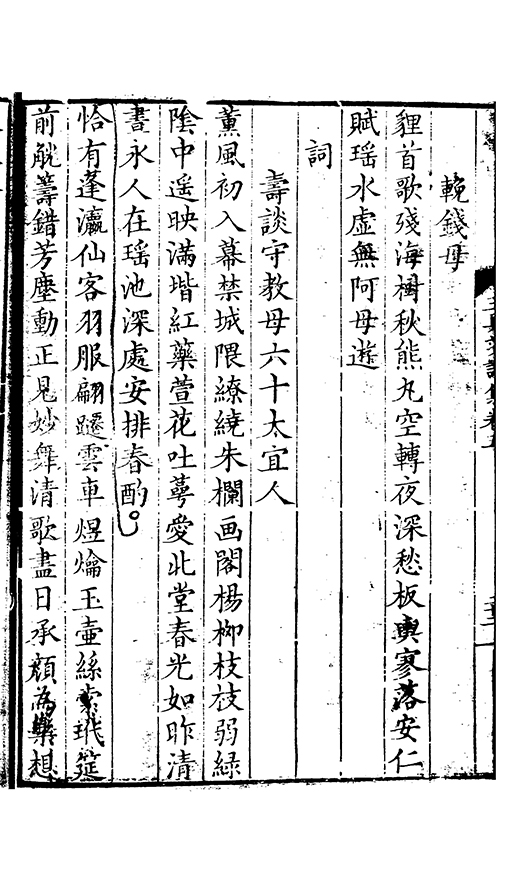 輓錢母
貍首歌殘海樹秋熊丸空轉夜深愁板輿寥落安仁
賦瑶水虚無阿母遊
詞
壽談守教母六十太宜人
薰風初入幕禁城隈繚繞朱欄画閣楊柳枝枝弱緑
陰中遥映滿堦紅藥萱花吐蕚愛此堂春光如昨清
晝永人在瑶池深處安排春酌
恰有蓬瀛仙客羽服翩躚雲車熠爚玉壷絲索玳筵
前觥籌錯芳塵動正見妙舞清歌盡日承顔為樂想